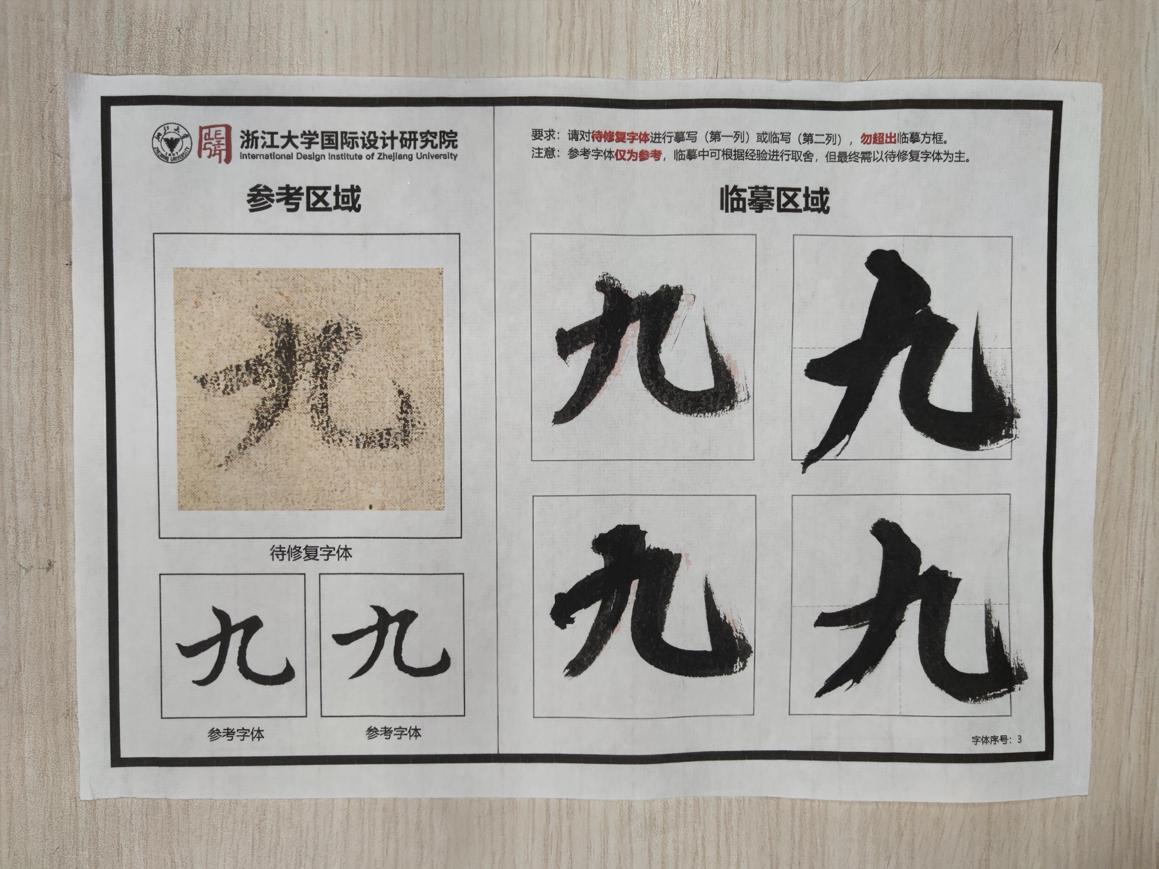 浙江大学国际设计研究院
International Design Institute of Zhejiang University
参考区域
九
待修复字体
九
九
参考字体
参考字体
要求：请对待修复字体进行摹写（第一列）或临写（第二列），勿超出临摹方框。
注意：参考字体仅为参考，临摹中可根据经验进行取舍，但最终需以待修复字体为主。
临摹区域
九
九
九
九
字体序号：3